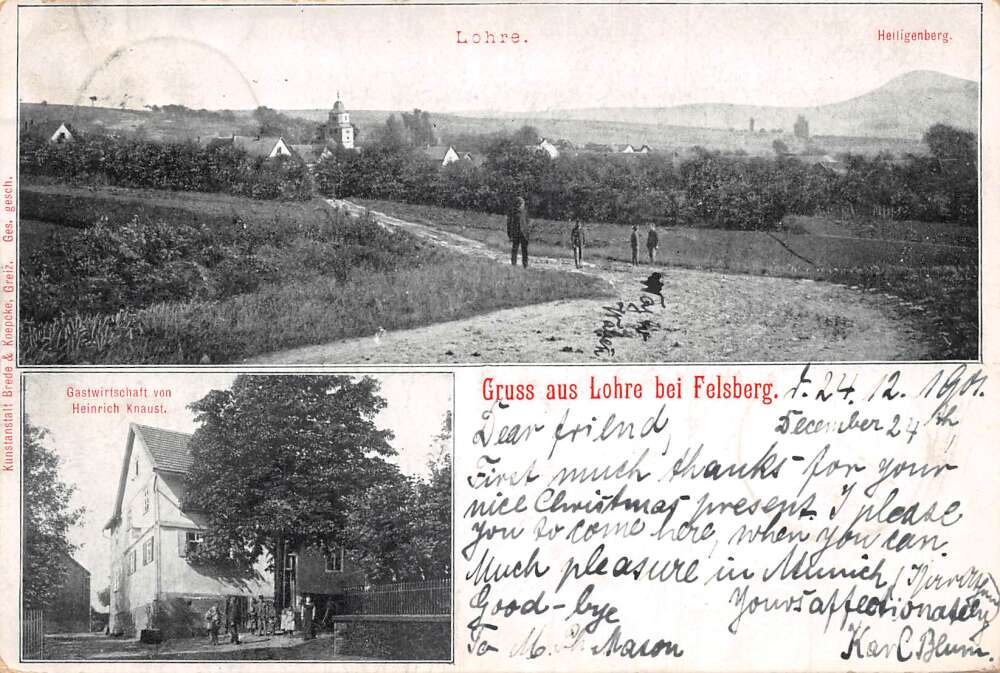 Lohre.
Heiligenberg.
Kunstanstalt Brede & Knepcke, Greiz. Ges. gesch.
Gastwirtschaft von
Heinrich Knaust.
Gruss aus Lohre bei Felsberg.
d. 24. 12. 1901.
December 24th
Dear friend,
First much thanks for your
nice Christmas present. I please
you to come here, when you can.
Much pleasure in Munich
Good-bye
Yours affectionately
To M. Mason
Karl Blum.